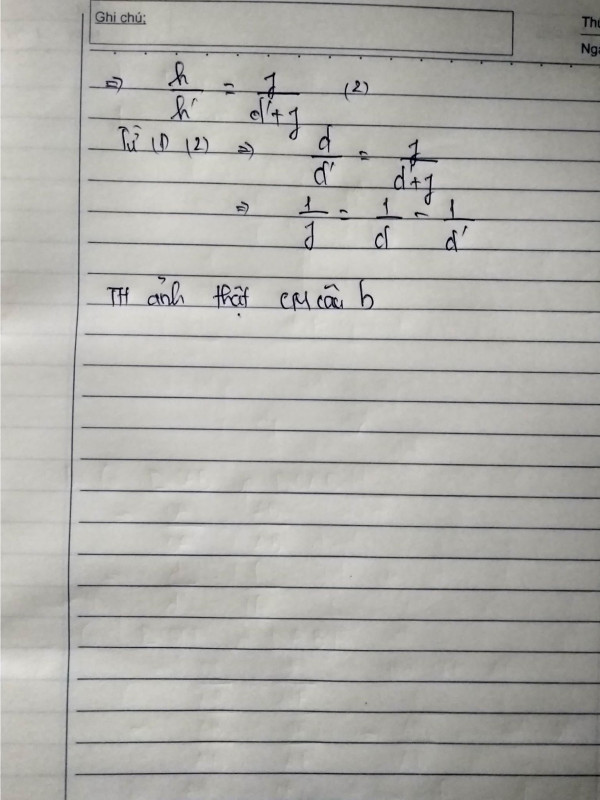 Ghi chú:
Thứ
Ngà
=> h/h' = f/(d'+f) (2)
Từ (1) (2) => d/d' = f/(d'+f)
=> 1/f = 1/d - 1/d'
TH ảnh thật CM câu b